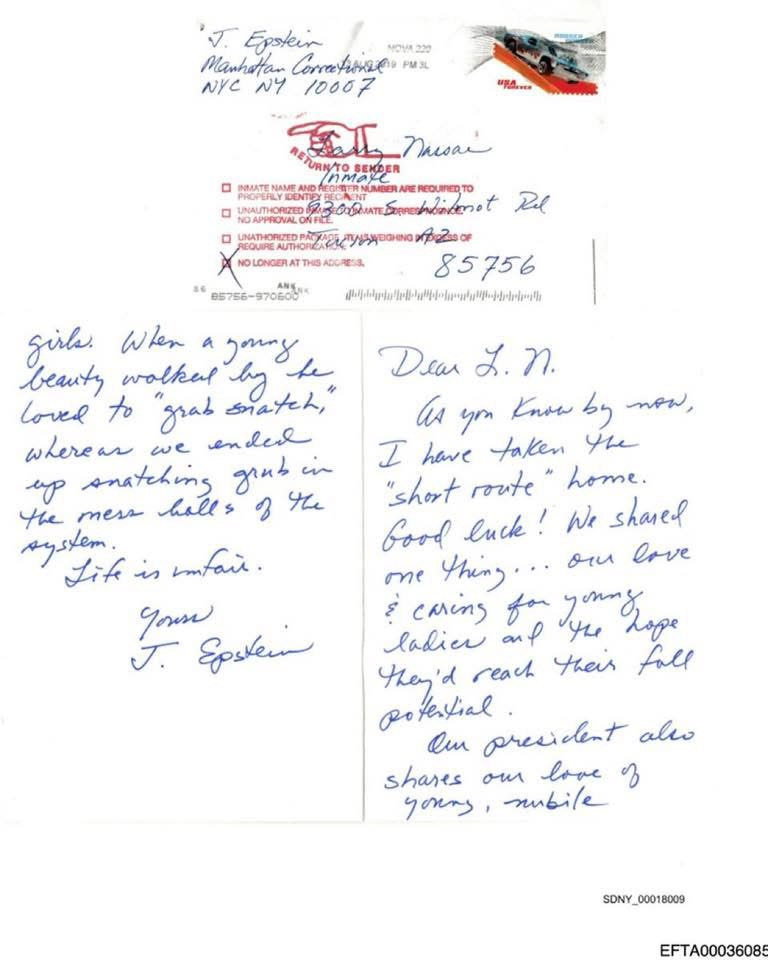 J. Epstein
Manhattan Correctional
NYC NY 10007
NOVA 220
AUG 2019 PM 3L
USA
FOREVER
RETURN TO SENDER
Larry Nassar
Inmate
9300 S. Wilmot Rd
Tucson AZ
85756
INMATE NAME AND REGISTER NUMBER ARE REQUIRED TO
PROPERLY IDENTIFY RECIPIENT
UNAUTHORIZED INMATE TO INMATE CORRESPONDENCE,
NO APPROVAL ON FILE.
UNAUTHORIZED PACKAGE, ITEMS WEIGHING IN EXCESS OF
REQUIRE AUTHORIZATION.
X NO LONGER AT THIS ADDRESS.
86
ANK
85756-970600
Dear L. N.
As you know by now,
I have taken the
"short route" home.
Good luck! We shared
one thing... our love
& caring for young
ladies and the hope
they'd reach their full
potential.
Our president also
shares our love of
young, nubile
girls. When a young
beauty walked by he
loved to "grab snatch,"
whereas we ended
up snatching grub in
the mess halls of the
system.
Life is unfair.
Yours
J. Epstein
SDNY_00018009
EFTA00036085